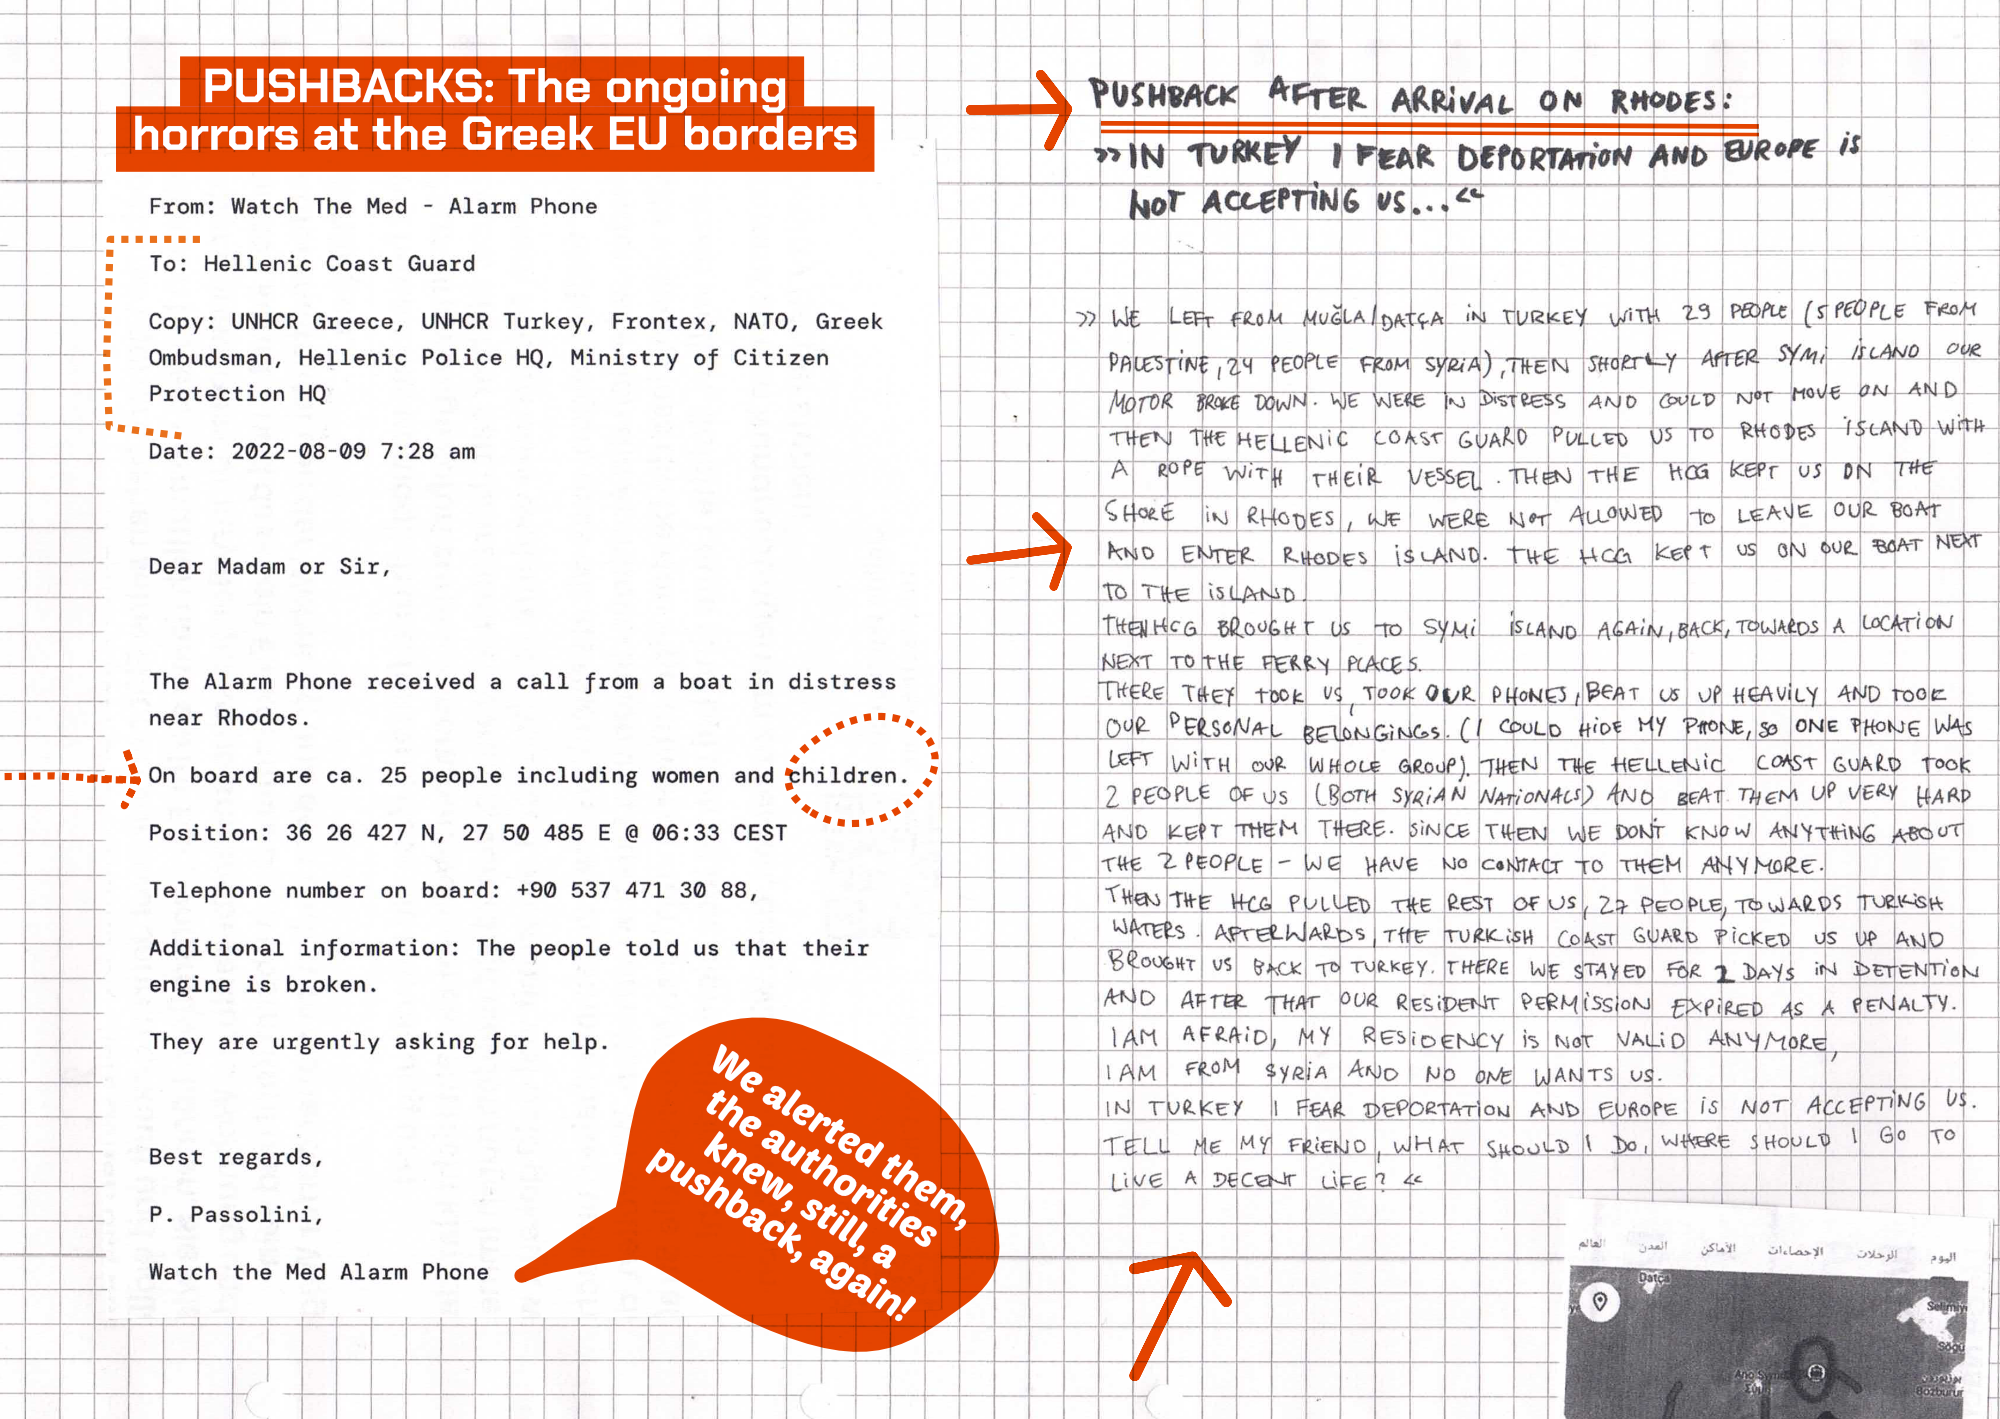 PUSHBACKS: The ongoing
horrors at the Greek EU borders
From: Watch The Med - Alarm Phone
To: Hellenic Coast Guard
Copy: UNHCR Greece, UNHCR Turkey, Frontex, NATO, Greek
Ombudsman, Hellenic Police HQ, Ministry of Citizen
Protection HQ
Date: 2022-08-09 7:28 am
Dear Madam or Sir,
The Alarm Phone received a call from a boat in distress
near Rhodos.
On board are ca. 25 people including women and children.
Position: 36 26 427 N, 27 50 485 E @ 06:33 CEST
Telephone number on board: +90 537 471 30 88,
Additional information: The people told us that their
engine is broken.
They are urgently asking for help.
Best regards,
P. Passolini,
Watch the Med Alarm Phone
We alerted them,
the authorities
knew, still, a
pushback, again!
PUSHBACK AFTER ARRIVAL ON RHODES:
»IN TURKEY I FEAR DEPORTATION AND EUROPE IS
NOT ACCEPTING US...«
» WE LEFT FROM MUĞLA/DATÇA IN TURKEY WITH 29 PEOPLE (5 PEOPLE FROM
PALESTINE, 24 PEOPLE FROM SYRIA), THEN SHORTLY AFTER SYMI ISLAND OUR
MOTOR BROKE DOWN. WE WERE IN DISTRESS AND COULD NOT MOVE ON AND
THEN THE HELLENIC COAST GUARD PULLED US TO RHODES ISLAND WITH
A ROPE WITH THEIR VESSEL. THEN THE HCG KEPT US ON THE
SHORE IN RHODES, WE WERE NOT ALLOWED TO LEAVE OUR BOAT
AND ENTER RHODES ISLAND. THE HCG KEPT US ON OUR BOAT NEXT
TO THE ISLAND.
THEN HCG BROUGHT US TO SYMI ISLAND AGAIN, BACK, TOWARDS A LOCATION
NEXT TO THE FERRY PLACES.
THERE THEY TOOK US, TOOK OUR PHONES, BEAT US UP HEAVILY AND TOOK
OUR PERSONAL BELONGINGS. (I COULD HIDE MY PHONE, SO ONE PHONE WAS
LEFT WITH OUR WHOLE GROUP). THEN THE HELLENIC COAST GUARD TOOK
2 PEOPLE OF US (BOTH SYRIAN NATIONALS) AND BEAT THEM UP VERY HARD
AND KEPT THEM THERE. SINCE THEN WE DON'T KNOW ANYTHING ABOUT
THE 2 PEOPLE - WE HAVE NO CONTACT TO THEM ANYMORE.
THEN THE HCG PULLED THE REST OF US, 27 PEOPLE, TOWARDS TURKISH
WATERS. AFTERWARDS, THE TURKISH COAST GUARD PICKED US UP AND
BROUGHT US BACK TO TURKEY. THERE WE STAYED FOR 2 DAYS IN DETENTION
AND AFTER THAT OUR RESIDENT PERMISSION EXPIRED AS A PENALTY.
I AM AFRAID, MY RESIDENCY IS NOT VALID ANYMORE,
I AM FROM SYRIA AND NO ONE WANTS US.
IN TURKEY I FEAR DEPORTATION AND EUROPE IS NOT ACCEPTING US.
TELL ME MY FRIEND, WHAT SHOULD I DO, WHERE SHOULD I GO TO
LIVE A DECENT LIFE? «
اليوم الرحلات الإحصاءات الأماكن المدن العالم
Datça
Selimiy
Söğü
Ano Sym
Σύμη
Bozburur